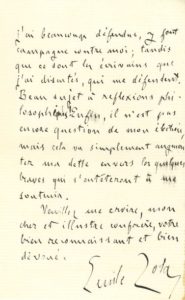 j'ai beaucoup défendus, y font
campagne contre moi ; tandis
que ce sont les écrivains que
j'ai discutés, qui me défendent.
Beau sujet à réflexions phi-
losophiques. Enfin, il n'est pas
encore question de mon élection,
mais cela va simplement augmen-
ter ma dette envers les quelques
braves qui s'entêteront à me
soutenir.
Veuillez me croire, mon
cher et illustre confrère, votre
bien reconnaissant et bien
dévoué.
Emile Zola